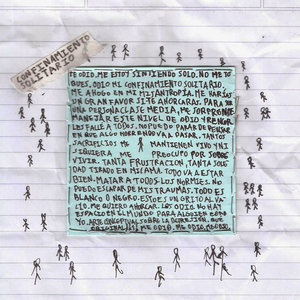 CONFINAMIENTO
SOLITARIO
TE ODIO. ME ESTOY SINTIENDO SOLO. NO ME TO
QUES. ODIO MI CONFINAMIENTO SOLITARIO.
ME AHOGO EN MI MISANTROPIA. ME HARIAS
UN GRAN FAVOR SI TE AHORCARAS. PARA
UNA PERSONA CLASE MEDIA, ME SORPRENDE
MANEJAR ESTE NIVEL DE ODIO Y RENCOR
LES FALLE A TODOS. NO PUEDO PARAR DE PENSAR
EN QUE ALGO HORRENDO VA A PASAR. TANTOS
SACRIFICIOS ME MANTIENEN VIVO Y NI
SIQUIERA ME PREOCUPO POR SOBRE
VIVIR. TANTA FRUSTRACION, TANTA SOLE
DAD TIRADO EN MI CAMA. TODO VA A ESTAR
BIEN. MATAR A TODOS LOS NORMIES. NO
PUEDO ESCAPAR DE MIS TRAUMAS. TODO ES
BLANCO O NEGRO. ESTO ES UN GRITO AL VA
CIO. ME QUIERO AHORCAR. LES ODIO. NO HAY
ESPACIO EN EL MUNDO PARA ALGUIEN COMO
YO. ARTE CONCEPTUAL SOBRE LA DEPRESION. QUE
ORIGINAL. ME ODIO. ME ODIO.